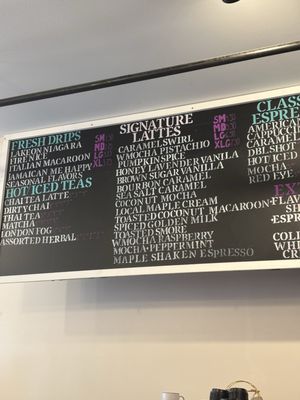 FRESH DRIPS
LAKEON NIAGARA
FIRE N ICE
ITALIAN MACAROON
JAMAICAN ME HAPPY
SEASONAL FLAVORS
SM
MD
LG
XL
HOT ICED TEAS
CHAI TEA LATTE
DIRTY CHAI
THAI TEA
MATCHA
LONDON FOG
ASSORTED HERBAL
SIGNATURE
LATTES
CARAMEL SWIRL
W.MOCHA PISTACHIO
PUMPKIN SPICE
HONEY LAVENDER VANILLA
BROWN SUGAR VANILLA
BOURBON CARAMEL
SEA SALT CARAMEL
COCONUT MOCHA
LOCAL MAPLE CREAM
TOASTED COCONUT MACAROON
SPICED GOLDEN MILK
TOASTED SMORE
W.MOCHA RASPBERRY
MOCHA PEPPERMINT
MAPLE SHAKEN ESPRESSO
SM
MD
LG
XLG
CLAS
ESPRE
AMERICA
CAPPUC
CARAMEL
DBL SHOT
HOT ICED
MOCHA
RED EYE
E
FLAV
SH
ESP
COL
WH
CRE